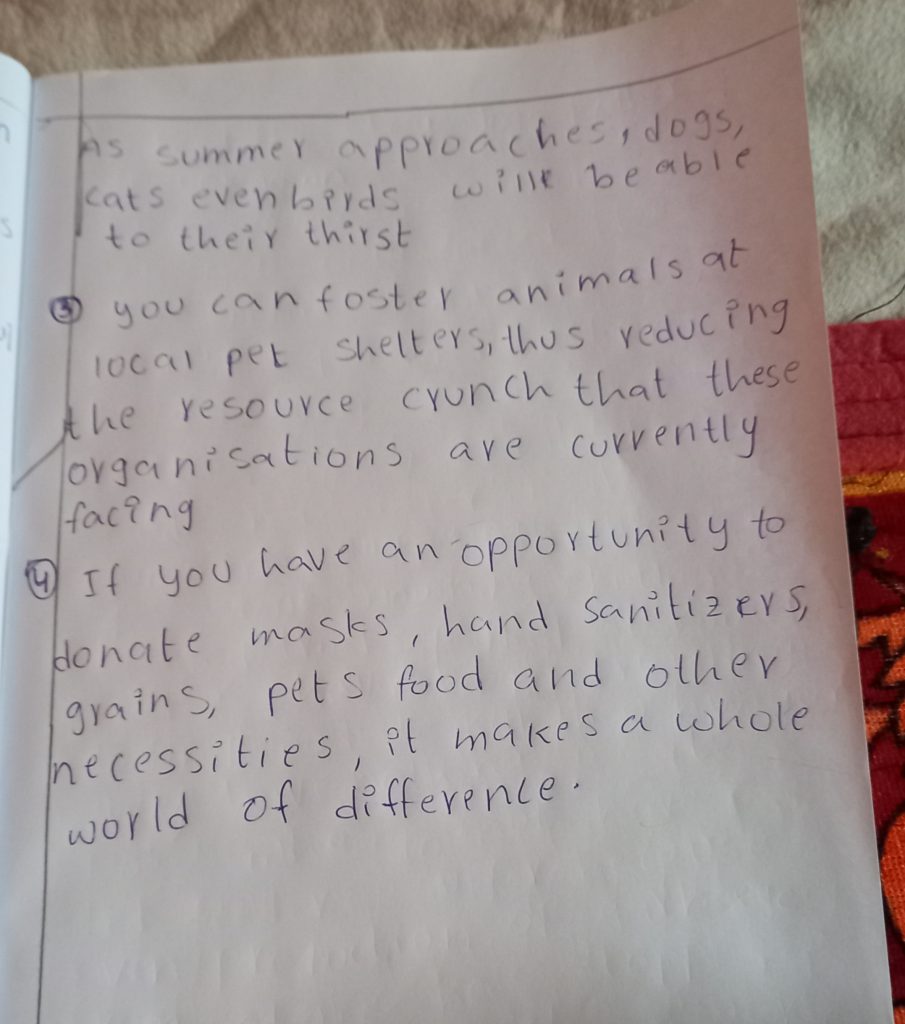 As summer approaches, dogs,
cats even birds will be able
to their thirst
③ you can foster animals at
local pet shelters, thus reducing
the resource crunch that these
organisations are currently
facing
④ If you have an opportunity to
donate masks, hand sanitizers,
grains, pets food and other
necessities, it makes a whole
world of difference.